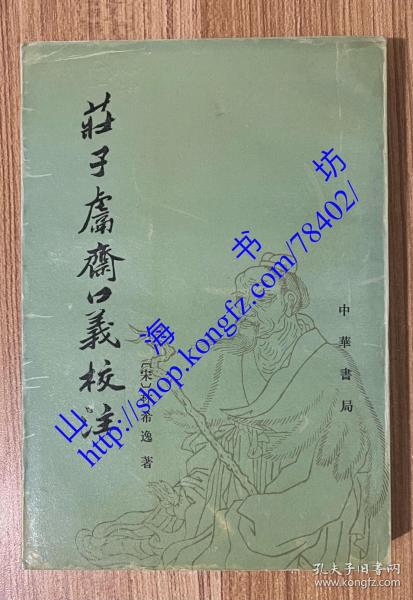 莊子鬳齋口義校注
〔宋〕林希逸 著
中華書局
山海书坊
http://shop.kongfz.com/78402/
孔夫子旧书网